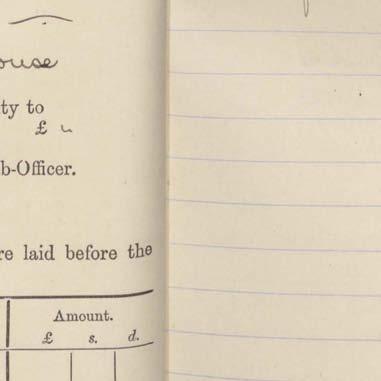 ouse
ty to
£ "
b-Officer.
re laid before the
Amount.
£ s. d.